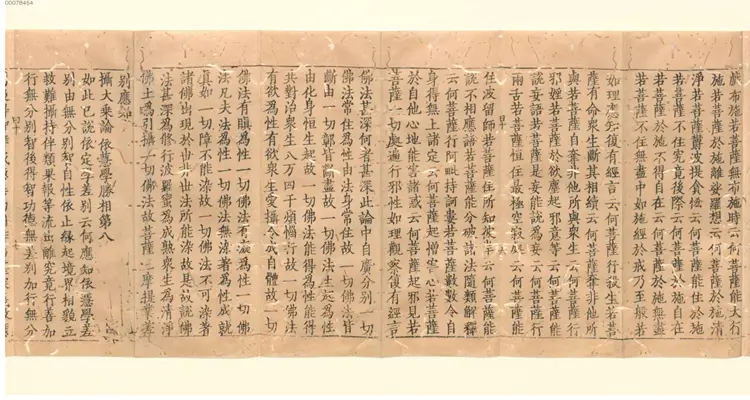 蔽布施若菩薩無布施時云何菩薩能大行
施若菩薩於施離娑羅想云何菩薩於施清
淨若菩薩鬱波提貪恡云何菩薩能住於施
若菩薩不住究竟後際云何菩薩於施自在
若菩薩於施不得自在云何菩薩於施無盡
若菩薩不住無盡中如施經於戒乃至般若
如理應知復有經言云何菩薩行殺生若菩
薩有命衆生斷其相續云何菩薩奪非他所
與若菩薩自奪非他所與衆生云何菩薩行
邪婬若菩薩於欲塵起邪意等云何菩薩能
說妄語若菩薩是妄能說為妄云何菩薩行
兩舌若菩薩恒住最極空寂處云何菩薩能
住波留師若菩薩住所知彼岸云何菩薩能
說不相應語若菩薩能分破說法隨類解釋
云何菩薩行阿毗持訶婁若菩薩數數令自
身得無上諸定云何菩薩起憎害心若菩薩
於自他心地能害諸惑云何菩薩起邪見若
菩薩一切處遍行邪性如理觀察復有經言
佛法甚深何者甚深此論中自廣分別一切
佛法常住為性由法身常住故一切佛法皆
斷由一切鄣皆斷盡故一切佛法生起為性
由化身恒生起故一切佛法能得為性能得
共對治衆生八万四千煩惱行故一切佛法
有欲為性有欲衆生愛攝令成自體故一切
佛法有瞋為性一切佛法有癡為性一切佛
法凡夫法為性一切佛法無染著為性成就
真如一切障不能染故一切佛法不可染著
諸佛出現於世非世法所能染故是故說佛
法甚深為修行波羅蜜為成熟衆生為清淨
佛土為引攝一切佛法故菩薩三摩提業差
別應知
攝大乘論 依慧學勝相第八
如此已說依定學差別云何應知依慧學差
別由無分別智自性依止緣起境界相貌立
救難攝持伴類果報等流出離究竟行善加
行無分別智後得智功德無差別加行無分
00078454